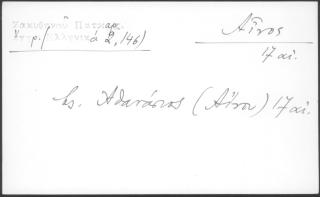 Ζακυθηνοῦ Πατριαρ.
ἔγγρ. (Ἑλληνικά 2, 146)
Αἶνος
17 αἰ.
Ἀθανάσιος (Αἴνου) 17 αἰ.